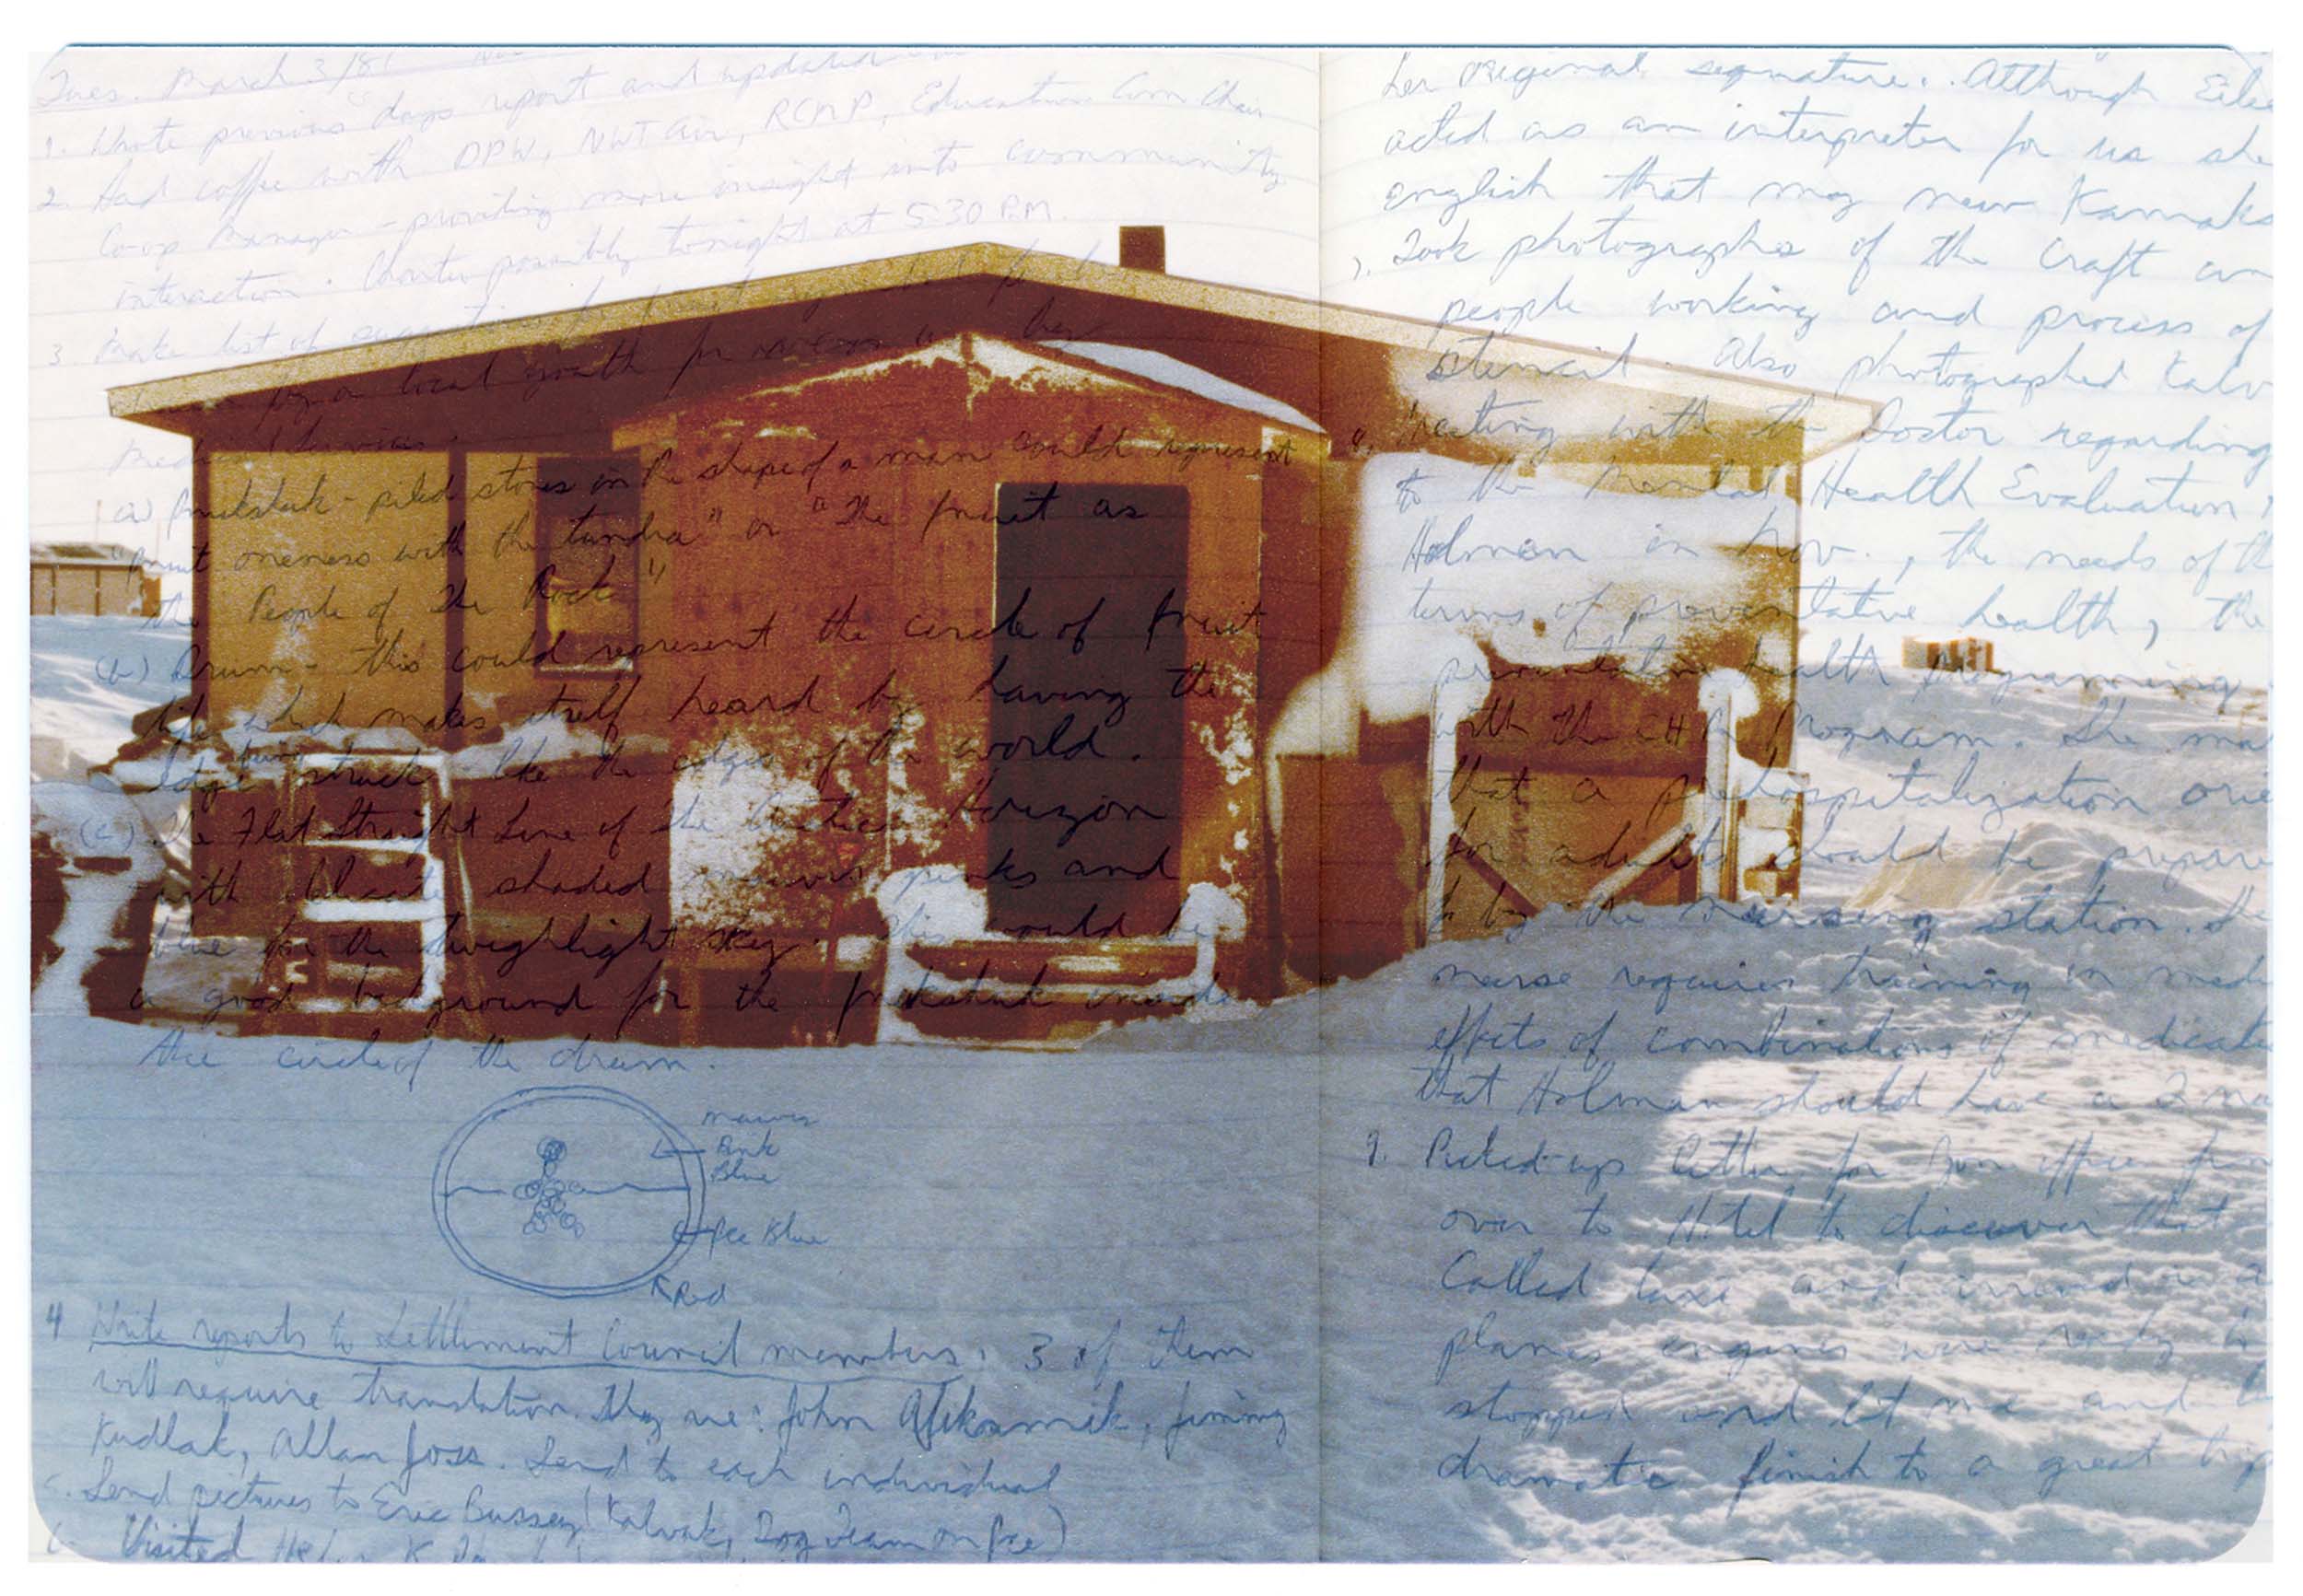 Tues. March 3/81
1. Wrote previous days report and updated
2. Had coffee with DPW, NWT Air, RCMP, Education Com Chair
Co-op Manager - providing more insight into community
interaction. Charter possibly tonight at 5:30 P.M.
3. Make list of
for a local youth for
Medical Services.
(a) Inukshuk - piled stones in the shape of a man could represent
"Inuit oneness with the tundra" or "The Inuit as
the People of The Rock"
(b) Drum - this could represent the circle of Inuit
life which makes itself heard by having the
edge being struck like the edges of the world.
(c) The Flat Straight Line of the Arctic Horizon
with delicate shaded mauves pinks and
blue for the twighlight sky. This would be
a good background for the Inukshuk inside
the circle of the drum.
mauves
Pink
Blue
Ice Blue
Red
4 Write reports to Settlement Council members: 3 of them
will require translation. They are: John Alikamik, Jimmy
Kudlak, Allan Joss. Send to each individual
Send pictures to Eric Bussey (Kalvak, Dog Team on Ice)
Visited
her original signature. Although
acted as an interpreter for us she
english that my new
7. Took photographs of the Craft
people working and process of
stencil. Also photographed Kalv
8. Meeting with the Doctor regarding
to the Mental Health Evaluation
Holman in Nov., the needs of th
terms of preventative health, the
preventative health programming
with the CHR Program. She
that a prehospitalization orie
for adults should be prepare
by the nursing station.
nurse requires training in medi
effects of combinations of medicati
that Holman should have a 2
9. Picked up letter for Zone office
over to Hotel to discover that
Called taxi and
planes engines were ready
stopped and let me and
dramatic finish to a great trip